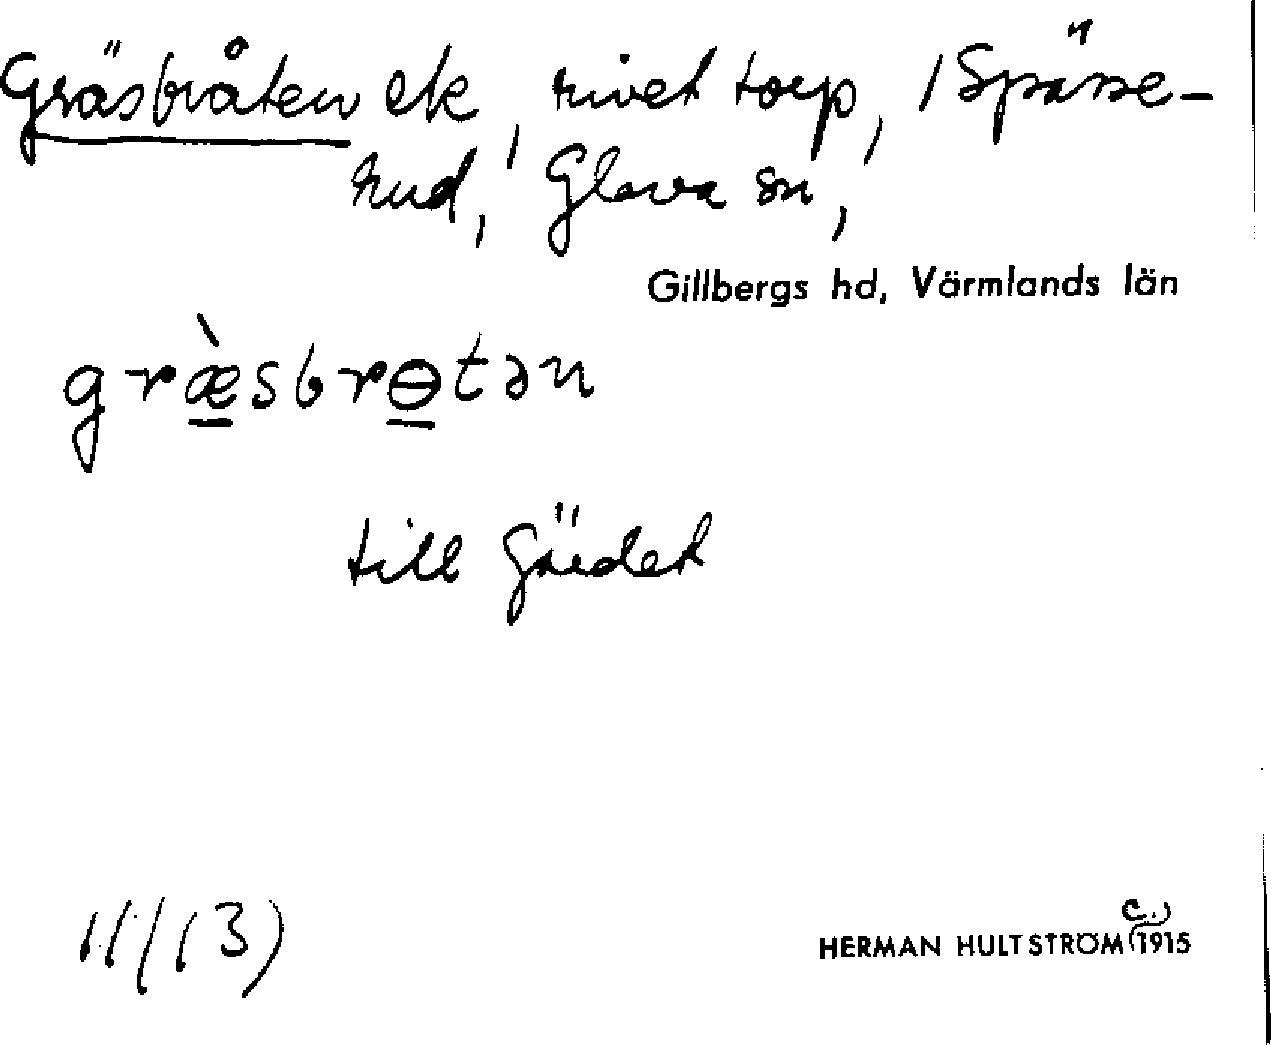 Gräsbråten ek, rivet torp, i Späse-
rud, Glava sn,
Gillbergs hd, Värmlands län
græ̀sbrɵtən
till Gärdet
11/(3)
c.
HERMAN HULTSTRÖM 1915